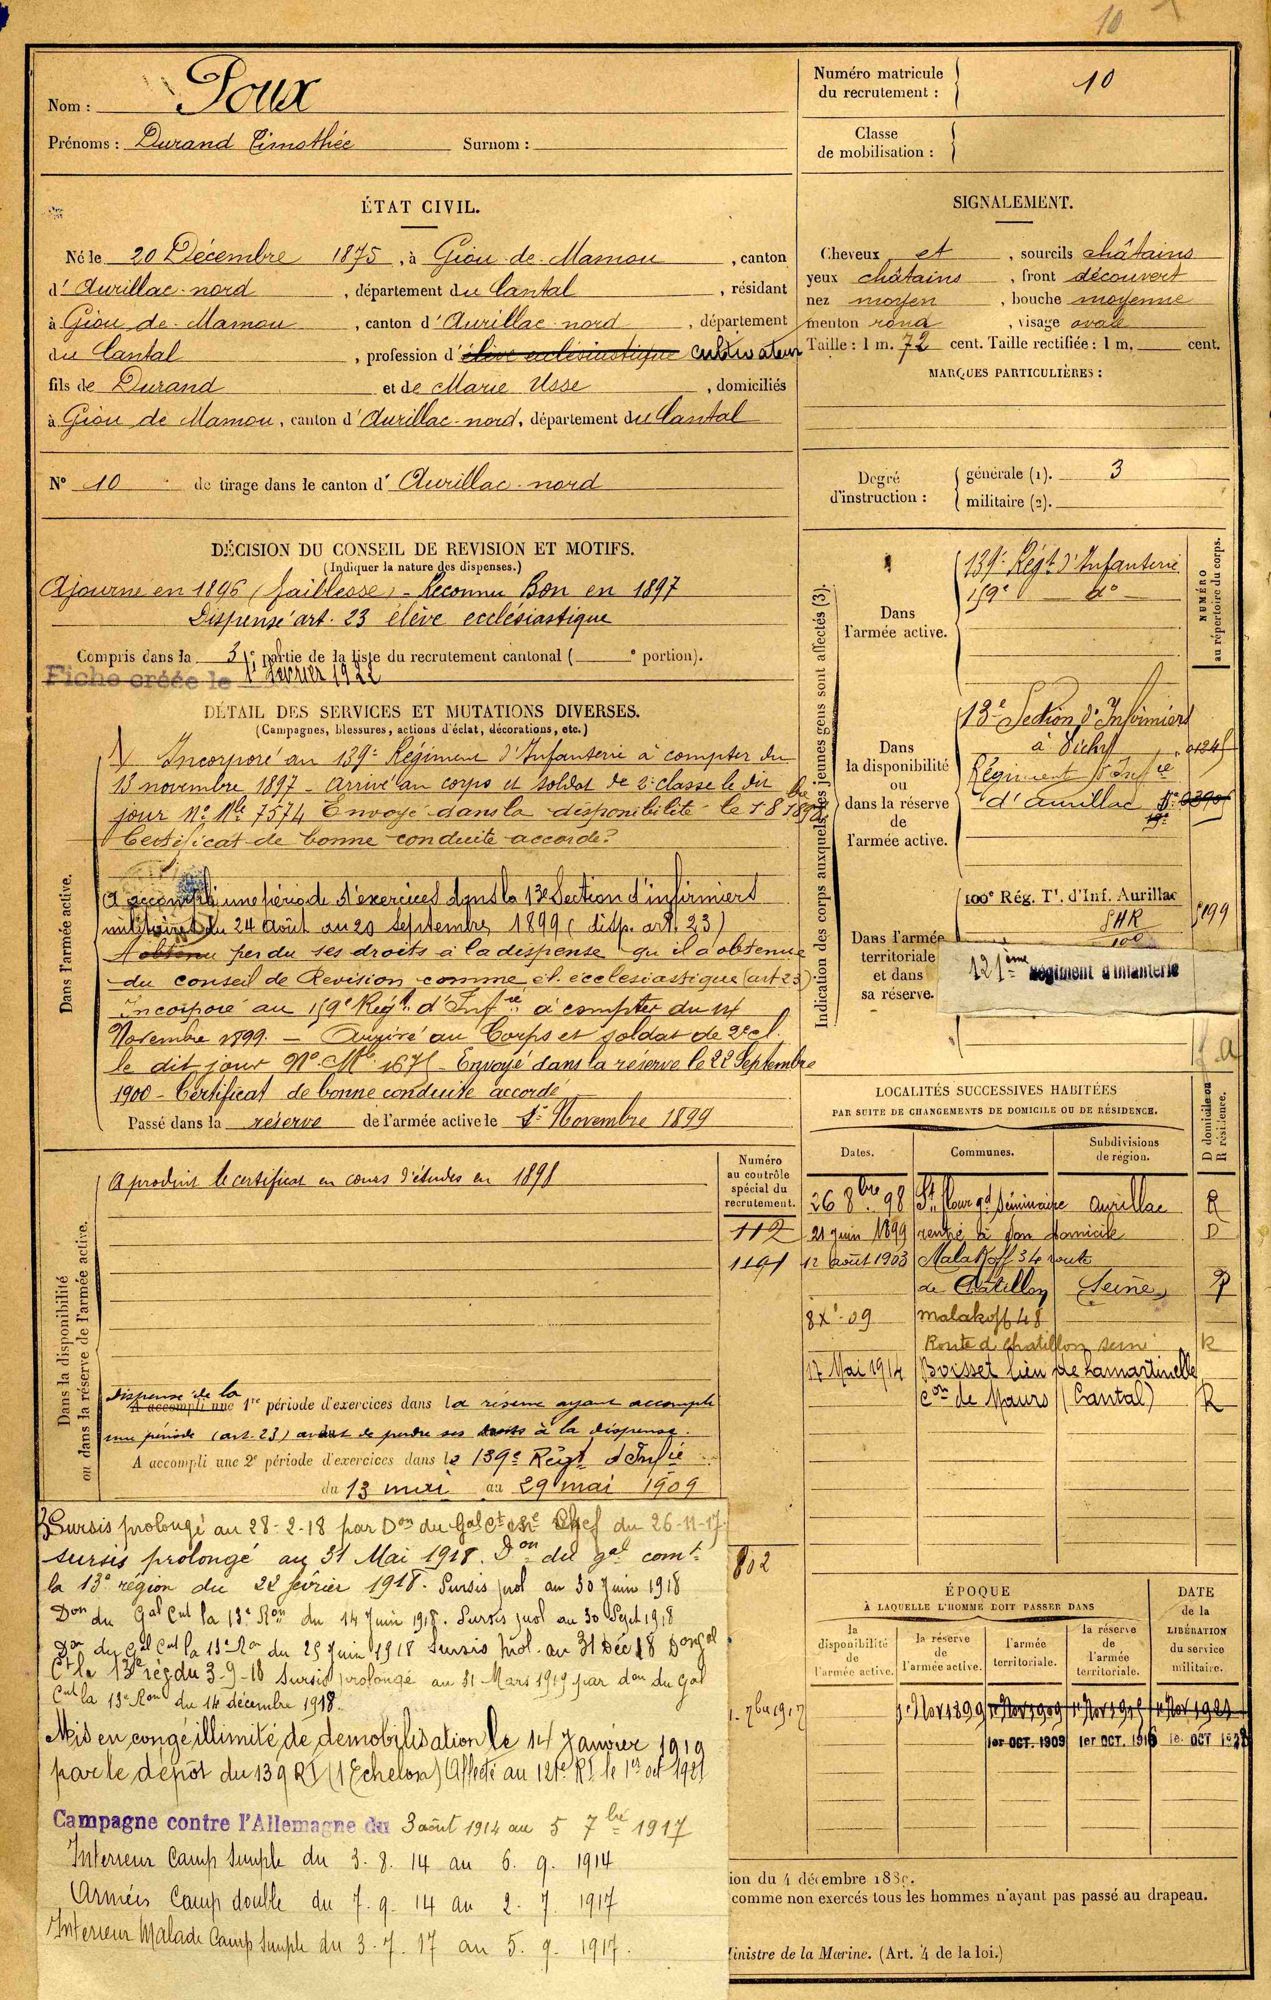 10
Nom : Poux
Prénoms : Durand Timothée Surnom :
Numéro matricule du recrutement : 10
Classe de mobilisation :
ÉTAT CIVIL.
Né le 20 Décembre 1875, à Giou-de-Mamou, canton
d'Aurillac-nord, département du Cantal, résidant
à Giou-de-Mamou, canton d'Aurillac-nord, département
du Cantal, profession d'élève ecclésiastique cultivateur
fils de Durand et de Marie Usse, domiciliés
à Giou de Mamou, canton d'Aurillac-nord, département du Cantal
N° 10 de tirage dans le canton d'Aurillac-nord
SIGNALEMENT.
Cheveux et, sourcils châtains
yeux châtains, front découvert
nez moyen, bouche moyenne
menton rond, visage ovale
Taille : 1 m. 72 cent. Taille rectifiée : 1 m. cent.
MARQUES PARTICULIÈRES :
Degré d'instruction : générale (1). 3
militaire (2).
DÉCISION DU CONSEIL DE REVISION ET MOTIFS.
(Indiquer la nature des dispenses.)
Ajourné en 1896 (faiblesse) - Reconnu Bon en 1897
Dispensé art. 23 élève ecclésiastique
Compris dans la 3e partie de la liste du recrutement cantonal ( e portion).
Fiche créée le 1er février 1922
DÉTAIL DES SERVICES ET MUTATIONS DIVERSES.
(Campagnes, blessures, actions d'éclat, décorations, etc.)
Dans l'armée active.
1) Incorporé au 139e Régiment d'Infanterie à compter du
13 novembre 1897 - Arrivé au corps et soldat de 2e classe le dit
jour N° Mle 7574 Envoyé dans la disponibilité le 18 1898
Certificat de bonne conduite accordé.
A accompli une période d'exercices dans la 13e Section d'infirmiers
militaires du 24 août au 20 septembre 1899 (disp. art. 23)
A obtenu perdu ses droits à la dispense qu'il a obtenue
du conseil de Revision comme él. ecclésiastique (art 23)
Incorporé au 159e Régt d'Infrie à compter du 14
Novembre 1899. - Arrivé au Corps et soldat de 2e cl.
le dit jour N° Mle 1675 - Envoyé dans la réserve le 22 Septembre
1900 - Certificat de bonne conduite accordé
Passé dans la réserve de l'armée active le 1er Novembre 1899
Indication des corps auxquels les jeunes gens sont affectés (3).
NUMÉRO au répertoire du corps.
Dans l'armée active.
139e Régt d'Infanterie
159e do
Dans la disponibilité ou dans la réserve de l'armée active.
13e Section d'Infirmiers
à Vichy
Régiment d'Infrie
d'Aurillac
Dans l'armée territoriale et dans sa réserve.
100e Rég. Tl. d'Inf. Aurillac
121ème Régiment d'Infanterie
Dans la disponibilité ou dans la réserve de l'armée active.
A produit le certificat en cours d'études en 1898
Numéro au contrôle spécial du recrutement.
112
dispensé de la
A accompli une 1re période d'exercices dans la réserve ayant accompli
une période (art. 23) avant de perdre ses droits à la dispense.
A accompli une 2e période d'exercices dans le 139e Régt d'Infie
du 13 mai au 29 mai 1909
LOCALITÉS SUCCESSIVES HABITÉES
PAR SUITE DE CHANGEMENTS DE DOMICILE OU DE RÉSIDENCE.
Dates. Communes. Subdivisions de région. D domicile ou R résidence.
26 8bre 98 St flour gd Séminaire Aurillac R
21 juin 1899 rentré à son domicile D
12 août 1903 Malakoff 34 route
de Châtillon Seine R
8 Xe 09 Malakoff 48
Route d Chatillon Seine R
17 Mai 1914 Boisset lieu de Lamartinelle
Con de Maurs (Cantal) R
3) Sursis prolongé au 28-2-18 par Don du Gal Ct en Chef du 26-11-17.
Sursis prolongé au 31 Mai 1918. Don du gal comt
la 13e région du 22 février 1918. Sursis prol au 30 Juin 1918
Don du Gal Cnt la 13e Ron du 14 Juin 1918. Sursis prol au 30 Sept 1918
Don du Gal Cnt la 13e Ron du 25 Juin 1918 Sursis prol. au 31 Déc 18 Don gal
Ct la 13e rég du 3-9-18 Sursis prolongé au 31 Mars 1919 par don du Gal
Cnt la 13e Ron du 14 décembre 1918.
Mis en congé illimité de démobilisation le 14 Janvier 1919
par le dépôt du 139 RI (1 Echelon) Affecté au 121e RI le 1er oct 1921
Campagne contre l'Allemagne du 3 août 1914 au 5 7bre 1917
Intérieur Camp simple du 3. 8. 14 au 6. 9. 1914
Armées Camp double du 7. 9. 14 au 2. 7. 1917
Interieur Malade Camp simple du 3. 7. 17 au 5. 9. 1917.
802
7bre 1917
ÉPOQUE
À LAQUELLE L'HOMME DOIT PASSER DANS
la disponibilité de l'armée active. la réserve de l'armée active. l'armée territoriale. la réserve de l'armée territoriale.
DATE de la LIBÉRATION du service militaire.
1er Nov 1899 1er Nov 1909 1er Nov 1915
1er OCT. 1909 1er OCT. 1916
ion du 4 décembre 188
comme non exercés tous les hommes n'ayant pas passé au drapeau.
Ministre de la Marine. (Art. 4 de la loi.)